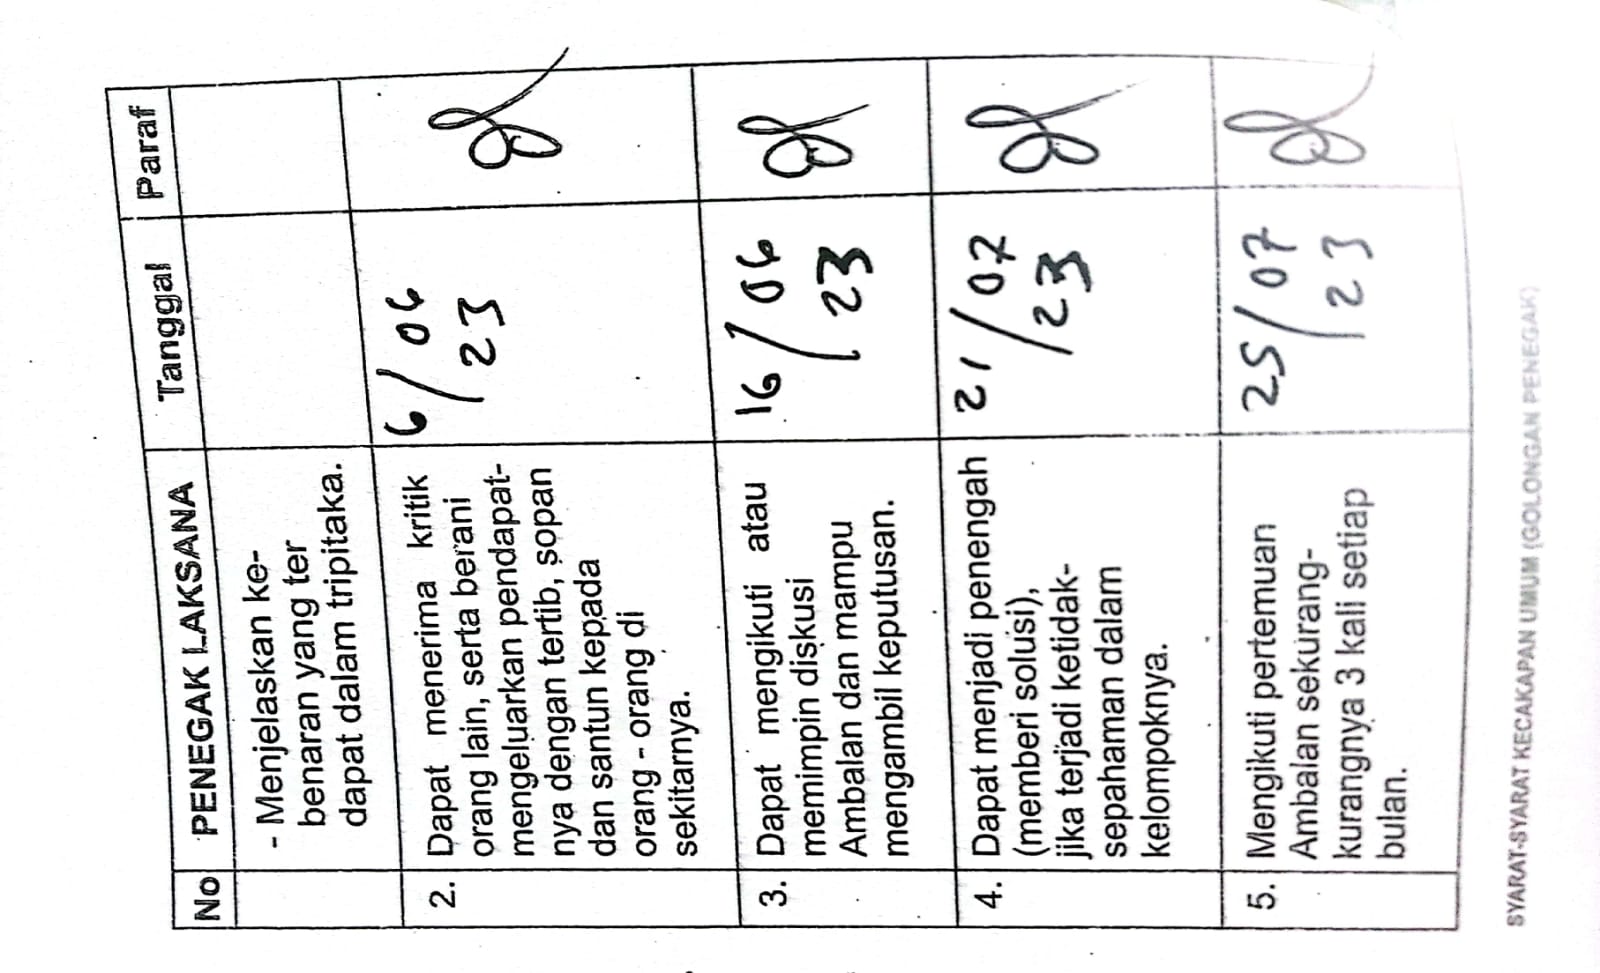 No PENEGAK LAKSANA Tanggal Paraf
- Menjelaskan ke-
benaran yang ter
dapat dalam tripitaka.
2. Dapat menerima kritik
orang lain, serta berani
mengeluarkan pendapat-
nya dengan tertib, sopan
dan santun kepada
orang - orang di
sekitarnya.
6/06
23
3. Dapat mengikuti atau
memimpin diskusi
Ambalan dan mampu
mengambil keputusan.
16/06
23
4. Dapat menjadi penengah
(memberi solusi),
jika terjadi ketidak-
sepahaman dalam
kelompoknya.
21/07
23
5. Mengikuti pertemuan
Ambalan sekurang-
kurangnya 3 kali setiap
bulan.
25/07
23
SYARAT-SYARAT KECAKAPAN UMUM (GOLONGAN PENEGAK)